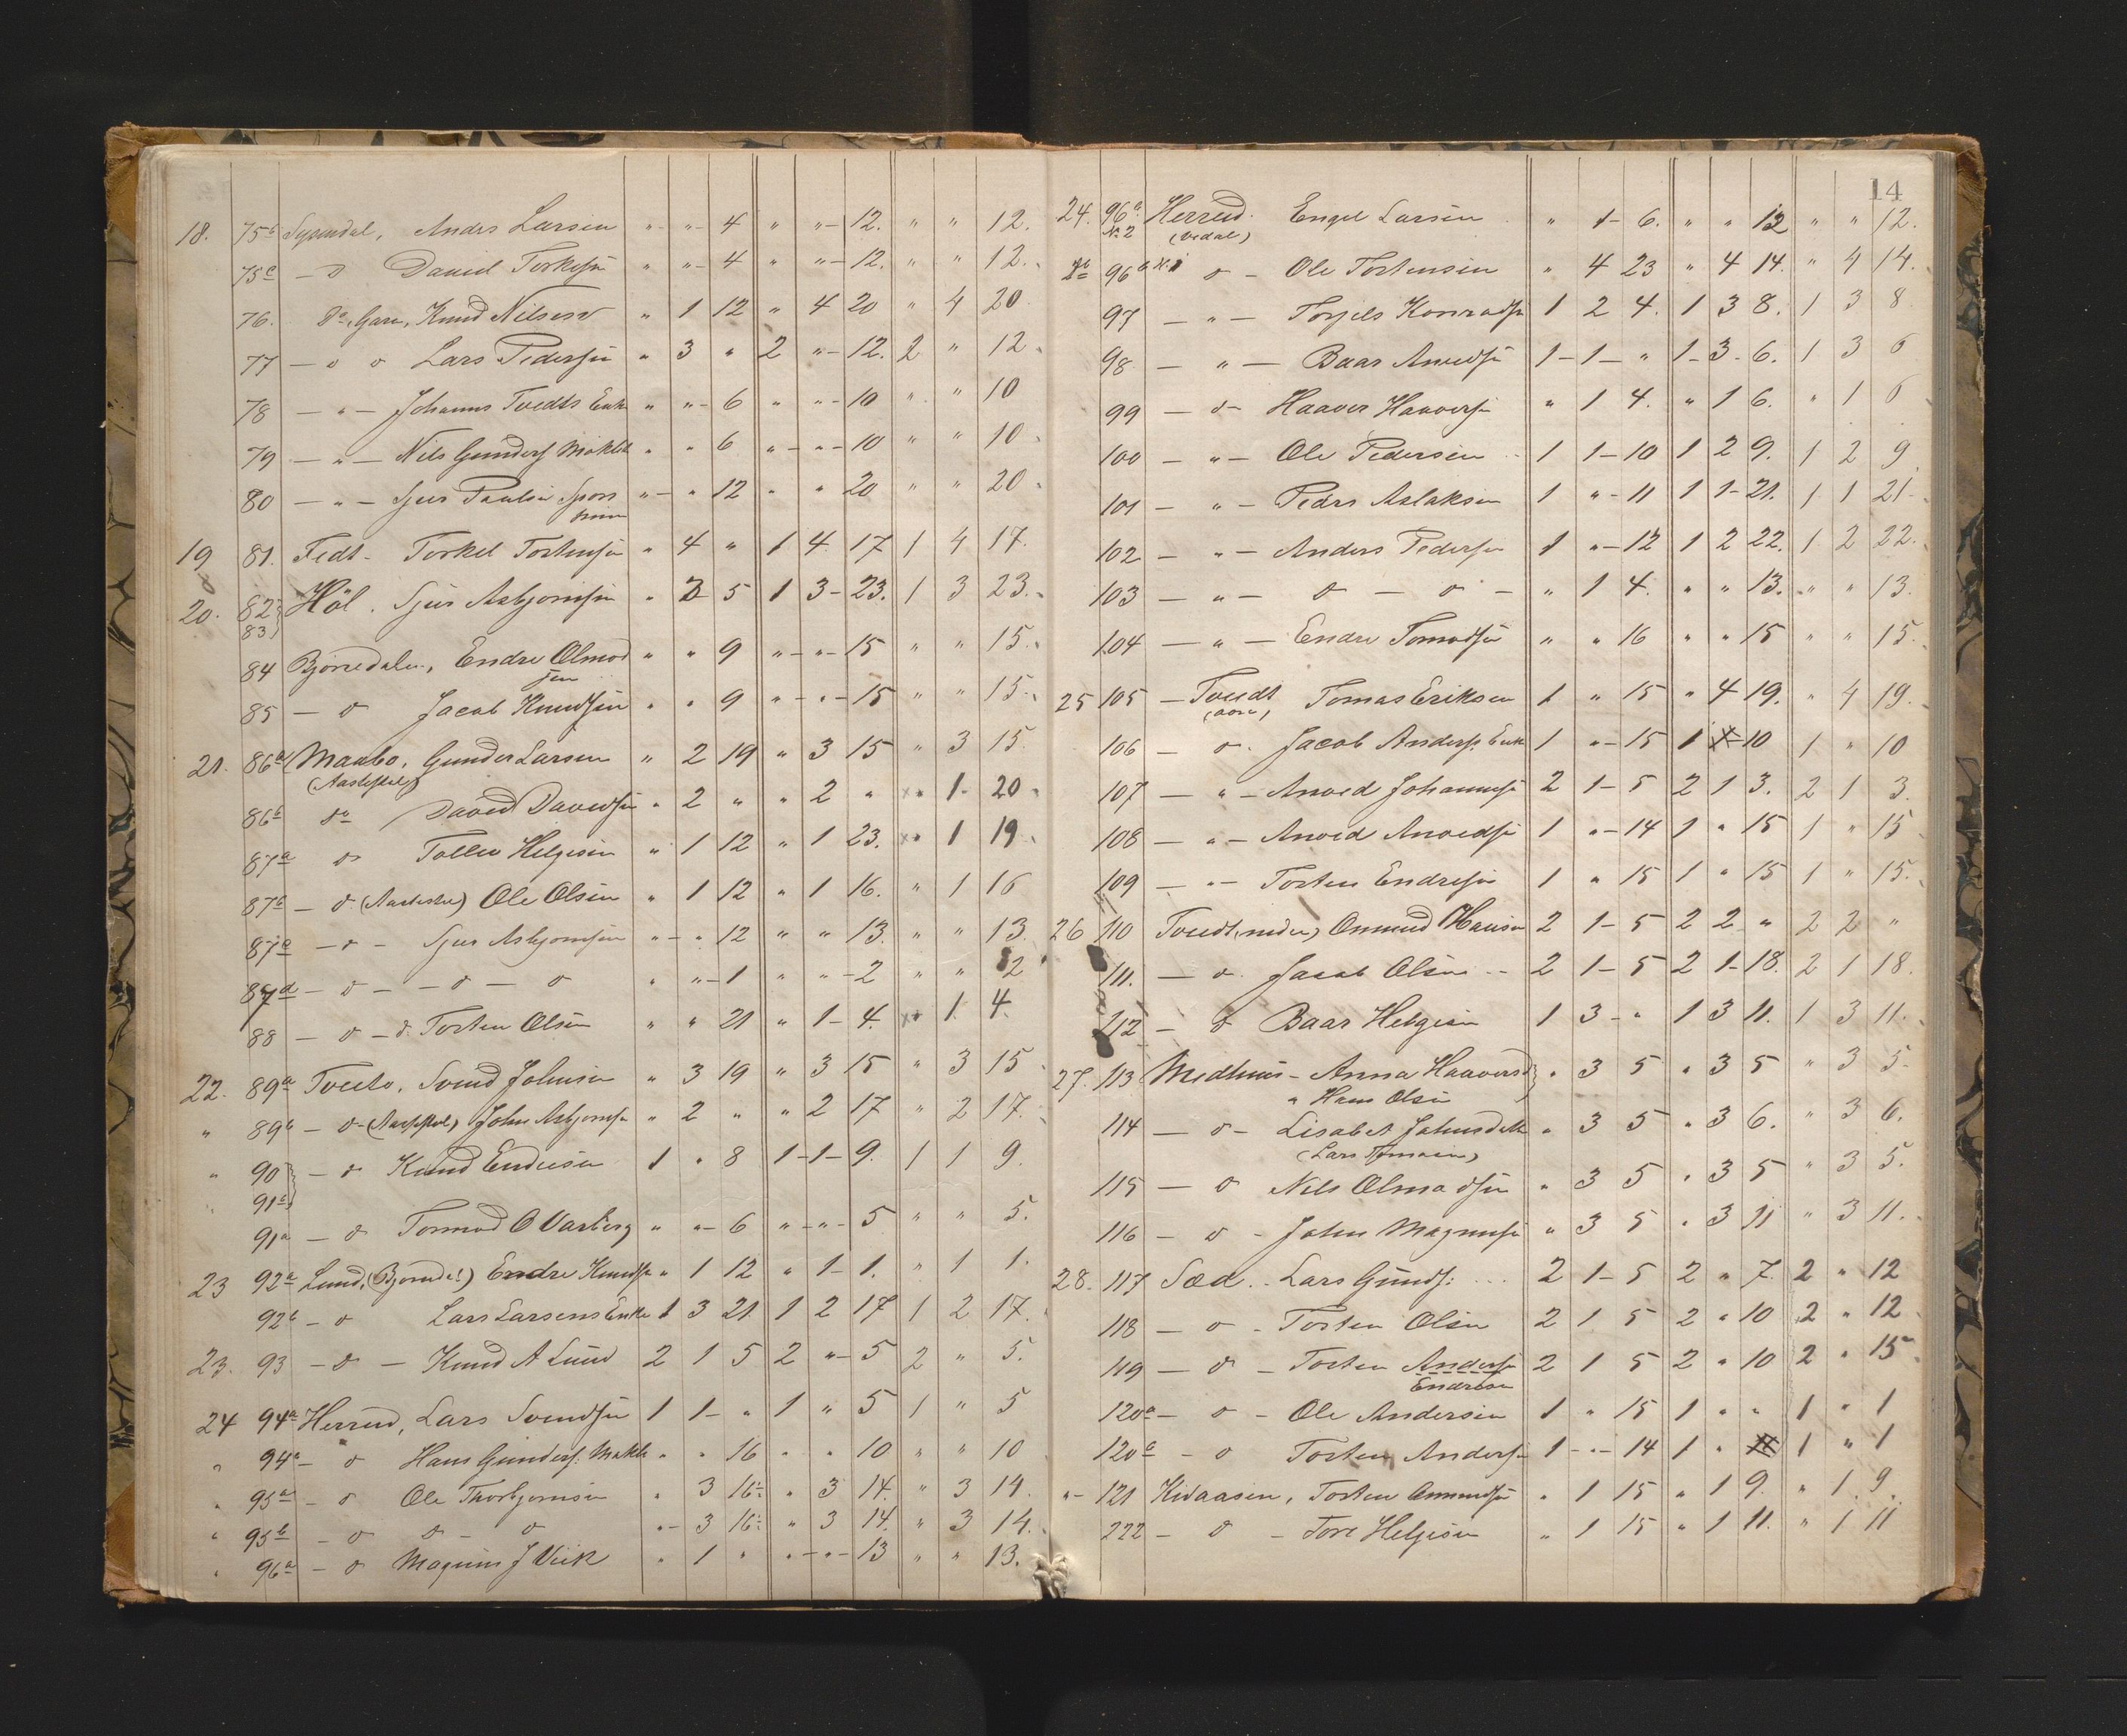 18. 75b Sysendal, Anders Larsen " " 4 " " 12. " " 12.
75c - o Daniel Torkelsen " " 4 " " 12. " " 12.
76. Do, Garen, Knud Nilsen " 1 12 " 4 20 " 4 20
77 - o o Lars Pedersen " 3 " 2 " 12. 2 " 12
78 - " - Johannes Tvedts Enke " " 6 " " 10 " " 10
79 - " - Nils Gunders " " 6 " " 10 " " 10
80 - " - Sjur Paulsen " " 12 " " 20 " " 20
19 81. Fedt - Torkel Tostensen " 4 " 1 4 17 1 4 17.
20. 82 Höl. Sjur Asbjornsen " 2 5 1 3 23. 1 3 23.
83
84 Bjoredalen, Endre Olmod " " 9 " " 15 " " 15.
sen
85 - o Jacob Knudsen " " 9 " " 15 " " 15.
21. 86a Maabo, Gunder Larsen " 2 19 " 3 15 " 3 15
86b do David Davidsen " 2 " " 2 " " 1 20
87a do Tollev Helgesen " 1 12 " 1 23. " 1 19
87b - o Ole Olsen " 1 12 " 1 16. " 1 16
87c - o - Sjur Asbjornsen " " 12 " " 13. " " 13.
87d - o - - o - o " " 1 " " 2 " " 2
88 - o - o Tosten Olsen " " 21 " 1 4. " 1 4.
22. 89a Tveito, Svend Johnsen " 3 19 " 3 15 " 3 15
" 89b - o - John Asbjornsen " 2 " " 2 17 " 2 17.
" 90 - o Knud Endresen 1 " 8 1 1 9. 1 1 9.
91b
91a - o Tormod O Varberg " " 6 " " 5 " " 5.
23 92a Lund, (Bjorndal) Endre Knudsen " 1 12 " 1 1. " 1 1.
92b - o Lars Larsens Enke 1 3 21 1 2 17 1 2 17.
23. 93 - o - Knud A Lund 2 1 5 2 " 5 2 " 5.
24 94a Herreid, Lars Svendsen 1 1 " 1 " 5 1 " 5
" 94b - o Hans Gunders. " " 16 " " 10 " " 10
" 95a - o Ole Thorbjornsen " 3 16 " 3 14. " 3 14.
" 95b - o o - o " 3 16 " 3 14. " 3 14.
" 96a - o Magnus J Viik " 1 " " " 13 " " 13.
14
24. 96a Herreid. Engel Larsen " 1 6. " " 12 " " 12.
No 2 (Vedal)
96b No 1 o - Ole Tostensen " 4 23 " 4 14. " 4 14.
97 - " - Torjels Konradsen 1 2 4. 1 3 8. 1 3 8
98 - " - Baar Anvedsen 1 1 " 1 3 6. 1 3 6
99 - o - Haaver Haaversen " 1 4. " 1 6. " 1 6
100 - " - Ole Pedersen 1 1 10 1 2 9. 1 2 9
101 - " - Peder Aslaksen 1 " 11 1 1 21. 1 1 21
102 - " - Anders Pedersen 1 " 12 1 2 22. 1 2 22.
103 - " - o - o - " 1 4. " " 13. " " 13.
104 - " - Endre Tormodsen " " 16 " " 15 " " 15.
25 105 - Tveidt Tomas Eriksen 1 " 15 " 4 19. " 4 19.
106 - o. Jacob Anders. Enke 1 " 15 1 10 1 " 10
107 - " - Anved Johannes. 2 1 5 2 1 3. 2 1 3.
108 - " - Anved Anvedsen 1 " 14 1 " 15 1 " 15
109 - " - Tosten Endresen 1 " 15 1 " 15 1 " 15.
26 110 Tveidt, neder, Ommund Hansen 2 1 5 2 2 " 2 2 "
111. - o. Jacob Olsen 2 1 5 2 1 18. 2 1 18.
112 - o Baar Helgesen 1 3 " 1 3 11. 1 3 11.
27. 113 Medhuus - Anna Haaversd " 3 5 " 3 5 " 3 5.
" Hans Olsen
114 - o - Lisabet Johnsdatt " 3 5 " 3 6. " 3 6.
(Lars Tomasen)
115 - o Nils Olmodsen " 3 5 " 3 5 " 3 5.
116 - o - John Magnusen " 3 5 " 3 11 " 3 11.
28. 117 Sæd. Lars Gunds: 2 1 5 2 " 7. 2 " 12
118 - o - Tosten Olsen 2 1 5 2 " 10 2 " 12
119 - o - Tosten Anders. 2 1 5 2 " 10 2 " 15
Endresen
120a - o - Ole Andersen 1 " 15 1 " " 1 " 1
120b - o Tosten Andersen 1 " 14 1 " 1 " 1
" 121 Kidaasen, Tosten Ommundsen " 1 15 " 1 9. " 1 9.
222 - o - Tore Helgesen " 1 15 " 1 11. " 1 11